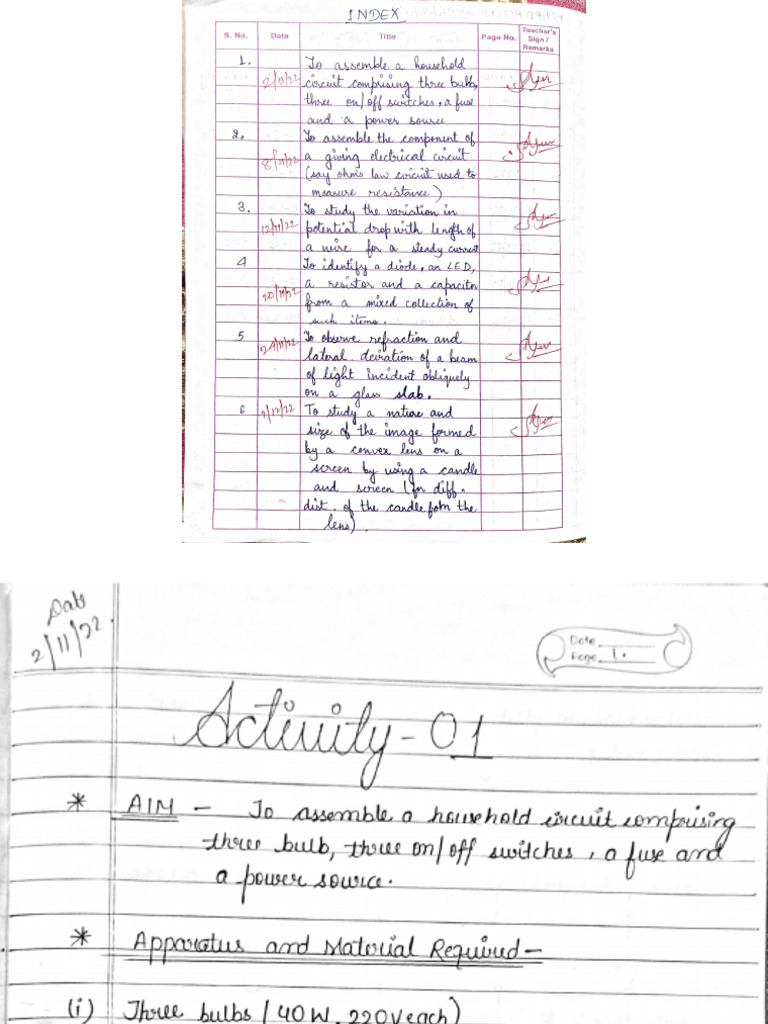 INDEX
S. No. Date Title Page No. Teacher's Sign / Remarks
1. 2/11/22 To assemble a household
circuit comprising three bulb,
three on/off switches, a fuse
and a power source
2. 8/11/22 To assemble the component of
a giving electrical circuit
(say ohm's law circuit used to
measure resistance)
3. 12/11/22 To study the variation in
potential drop with length of
a wire for a steady current
4 20/11/22 To identify a diode, an LED,
a resistor and a capacitor
from a mixed collection of
such items.
5 24/11/22 To observe refraction and
lateral deviration of a beam
of light incident obliquely
on a glass slab.
6 2/12/22 To study a nature and
size of the image formed
by a convex lens on a
screen by using a candle
and screen (for diff.
dist. of the candle fom the
lens).
Date
2/11/22.
Date
Page 1.
Activity - 01
* AIM - To assemble a household circuit comprising
three bulb, three on/off switches, a fuse and
a power source.
* Apparatus and Material Required -
(i) Three bulbs (40W, 220V each)